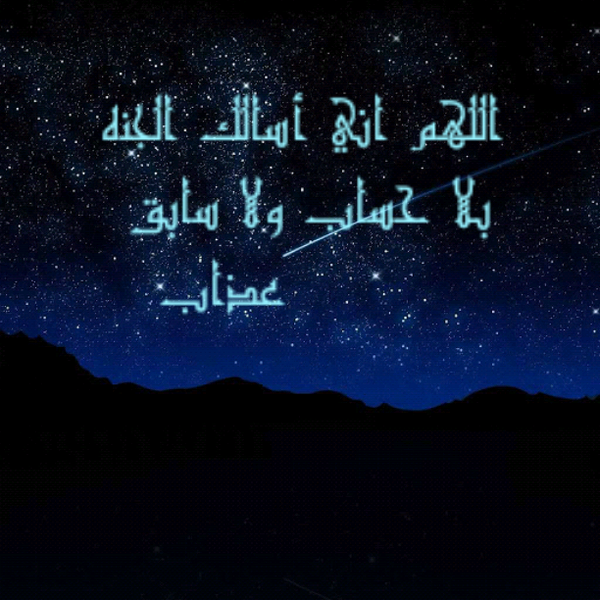 اللهم اني أسالك الجنه
بلا حساب ولا سأبق
عذاب